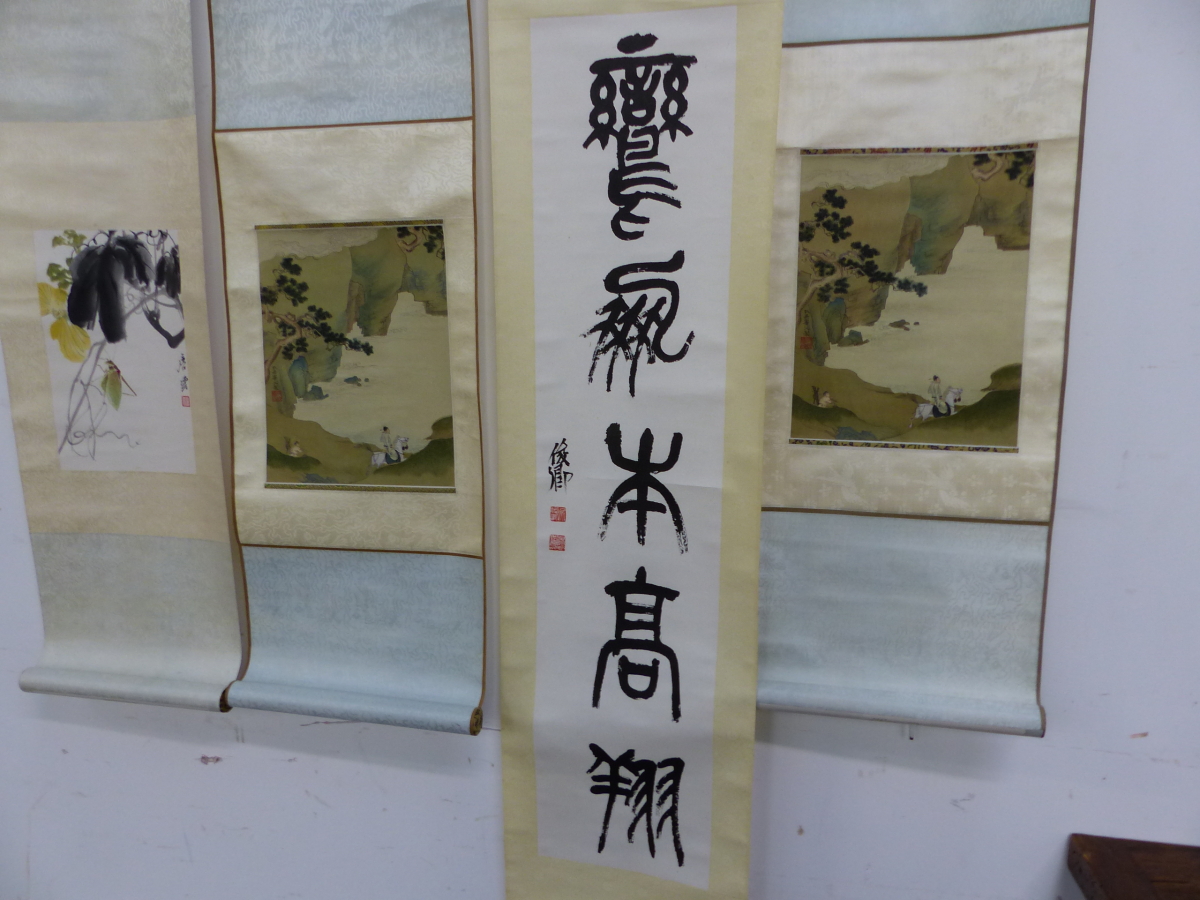 鸞鳳本高翔
俊卿